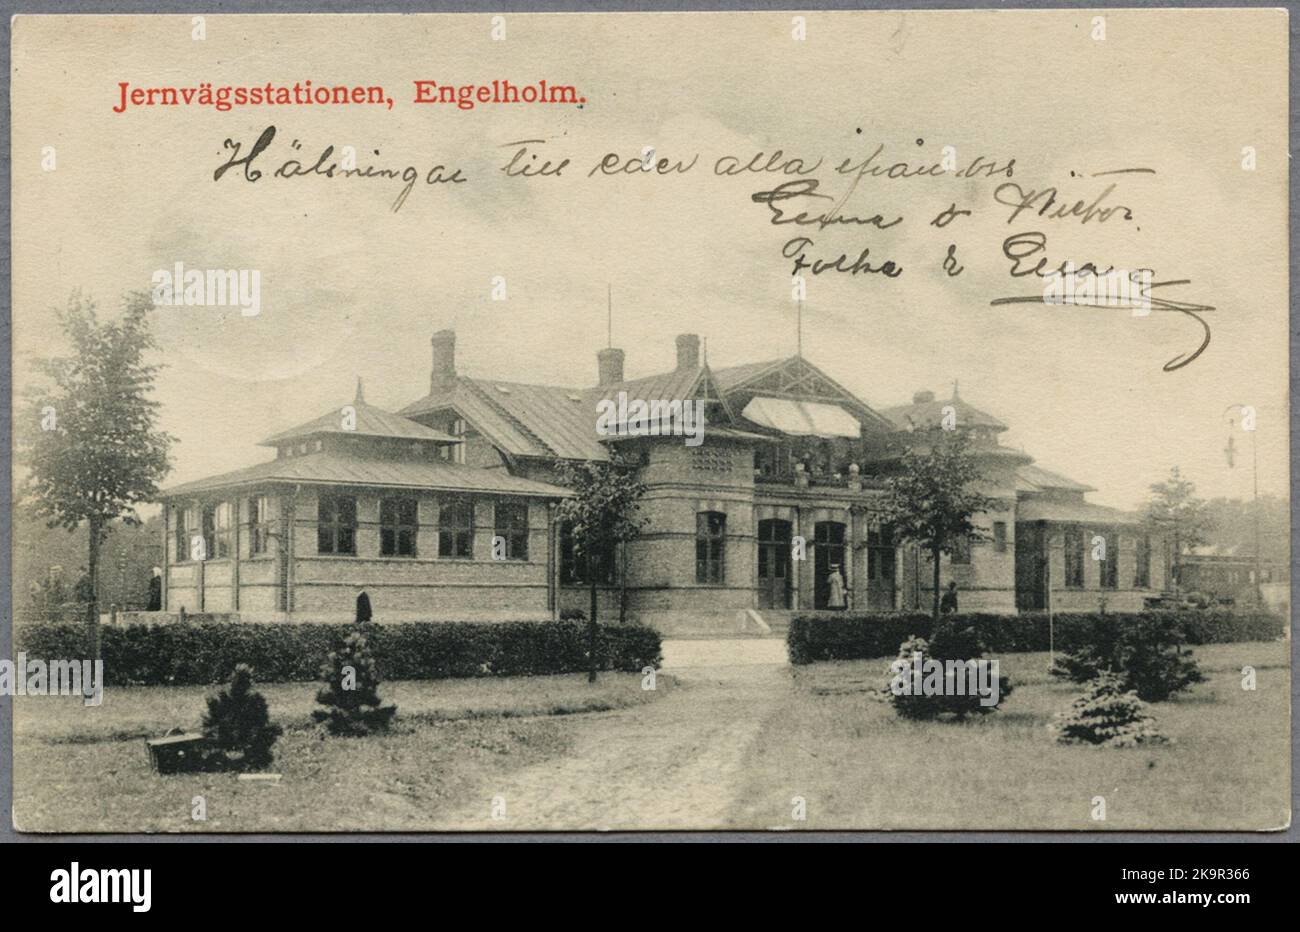 Jernvägsstationen, Engelholm.
Hälsningar till eder alla ifrån oss
Emma & Victor.
Folke & Elsa
a
alamy
alamy
Image ID: 2K9R366
www.alamy.com